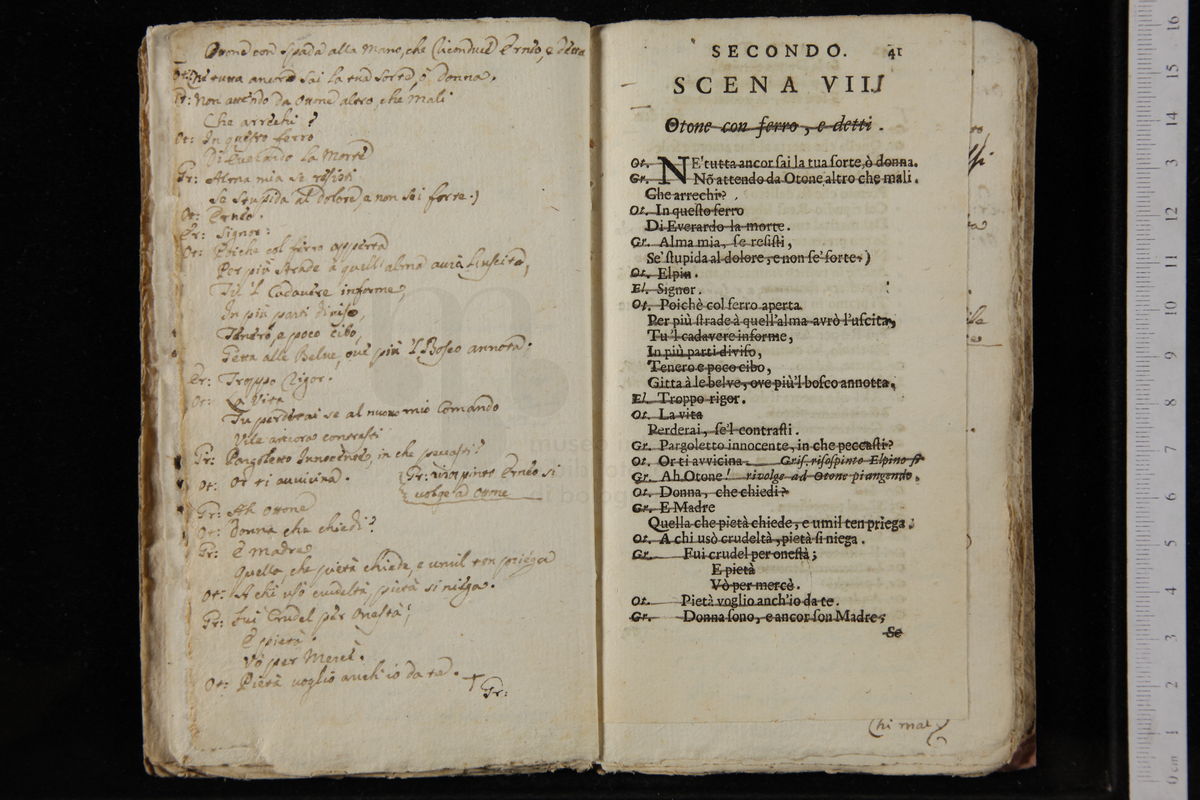 Otone con spada alla mano, che riconduce Ernéo, e detta
Ot: Né tutta ancora sai la tua sorte, ò donna.
Gr: Non attendo da Otone altro, che mali
Che arrechi?
Ot: In questo ferro
Di Everardo la Morte
Gr: Alma mia se resisti
Se stupida al dolore, e non sei forte.)
Ot: Ernéo.
Er: Signor:
Ot: Poiche col ferro apperta
Per più strade a quell'alma avrà l'uscita,
Tu 'l Cadavere informe,
In più parti diviso,
Tenero, e poco cibo,
Getta alle Belve, ove più 'l Bosco annotta.
Er: Troppo Rigor.
Ot: La Vita
Tu perderai se al nuovo mio Comando
Vile ancora contrasti
Gr: Pargoletto Innocente, in che peccasti?
Ot: Or ti avvicina. (Gr: risospinto Ernéo si
volge ad Ottone
Gr: Ah Ottone
Ot: Donna che chiedi?
Gr: E Madre
Quella che pietà chiede, e umil ten priega
Ot: A chi usò crudeltà pietà si niega.
Gr: Fui Crudel per Onestà;
E pietà
Vò per Mercè.
Ot: Pietà voglio anch'io da te. +
Gr:
SECONDO. 41
SCENA VIII
Otone con ferro, e detti.
Ot. NE' tutta ancor sai la tua sorte, ò donna.
Gr. Nõ attendo da Otone altro che mali.
Che arrechi?
Ot. In questo ferro
Di Everardo la morte.
Gr. Alma mia, se resisti,
Se' stupida al dolore, e non se' forte.)
Ot. Elpin.
El. Signor.
Ot. Poichè col ferro aperta
Per più strade à quell'alma avrò l'uscita,
Tu 'l cadavere informe,
In più parti diviso,
Tenero e poco cibo,
Gitta à le belve, ove più 'l bosco annotta.
El. Troppo rigor.
Ot. La vita
Perderai, se'l contrasti.
Gr. Pargoletto innocente, in che peccasti?
Ot. Or ti avvicina. Gris. risospinto Elpino si
Gr. Ah Otone! rivolge ad Otone piangendo.
Ot. Donna, che chiedi?
Gr. E Madre
Quella che pietà chiede, e umil ten priega.
Ot. A chi usò crudeltà, pietà si niega.
Gr. Fui crudel per onestà;
E pietà
Vò per mercè.
Ot. Pietà voglio anch'io da te.
Gr. Donna sono, e ancor son Madre;
Se
Chi mai